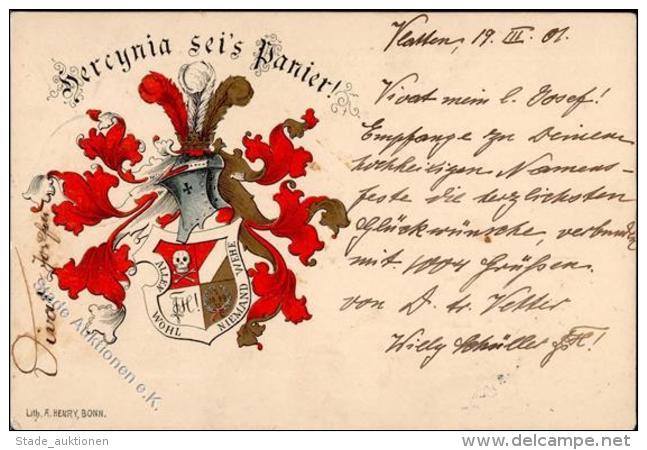 Hercynia sei's Panier!
Vlatten, 19. III. 01.
Vivat mein l. Josef!
Empfange zu Deinem
hochheiligen Namens-
feste die herzlichsten
Glückwünsche, verbunden
mit 1004 Grüßen.
von D. tr. Vetter
Willy Schüller
WOHL ALLEN NIEMAND WEHE
Vivat Josefus
Lith. A. HENRY, BONN.
Stade Auktionen e.K.
Stade_auktionen
www.delcampe.net